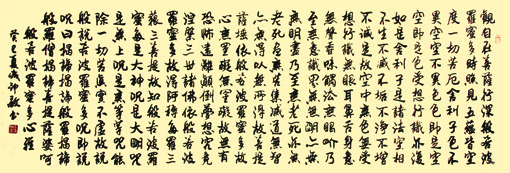 觀自在菩薩行深般若波
羅蜜多時照見五蘊皆空
度一切苦厄舍利子色不
異空空不異色色即是空
空即是色受想行識亦復
如是舍利子是諸法空相
不生不滅不垢不淨不增
不減是故空中無色無受
想行識無眼耳鼻舌身意
無聲香味觸法無眼界乃
至無意識界無無明亦無
無明盡乃至無老死亦無
老死盡無苦集滅道無智
亦無得以無所得故菩提
薩埵依般若波羅蜜多故
心無罣礙無罣礙故無有
恐怖遠離顛倒夢想究竟
涅槃三世諸佛依般若波
羅蜜多故得阿耨多羅三
藐三菩提故知般若波羅
蜜多是大神咒是大明咒
是無上咒是無等等咒能
除一切苦真實不虛故說
般若波羅蜜多咒即說
咒曰揭諦揭諦般羅揭諦
般羅僧揭諦菩提薩婆訶
般若波羅蜜多心經
癸巳夏